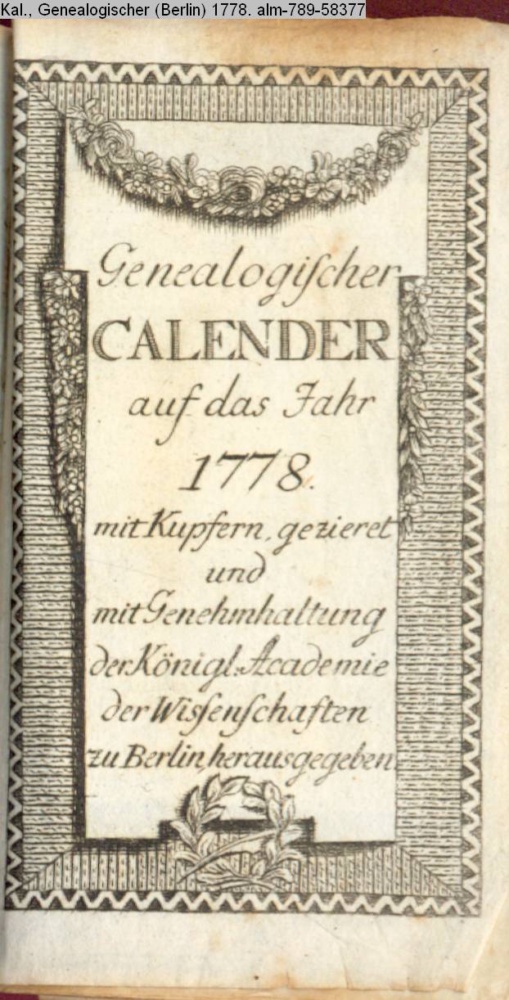 Kal., Genealogischer (Berlin) 1778. alm-789-58377
Genealogiſcher
CALENDER
auf das Jahr
1778.
mit Kupfern, gezieret
und
mit Genehmhaltung
der Königl. Academie
der Wiſſenſchaften
zu Berlin, herausgegeben.